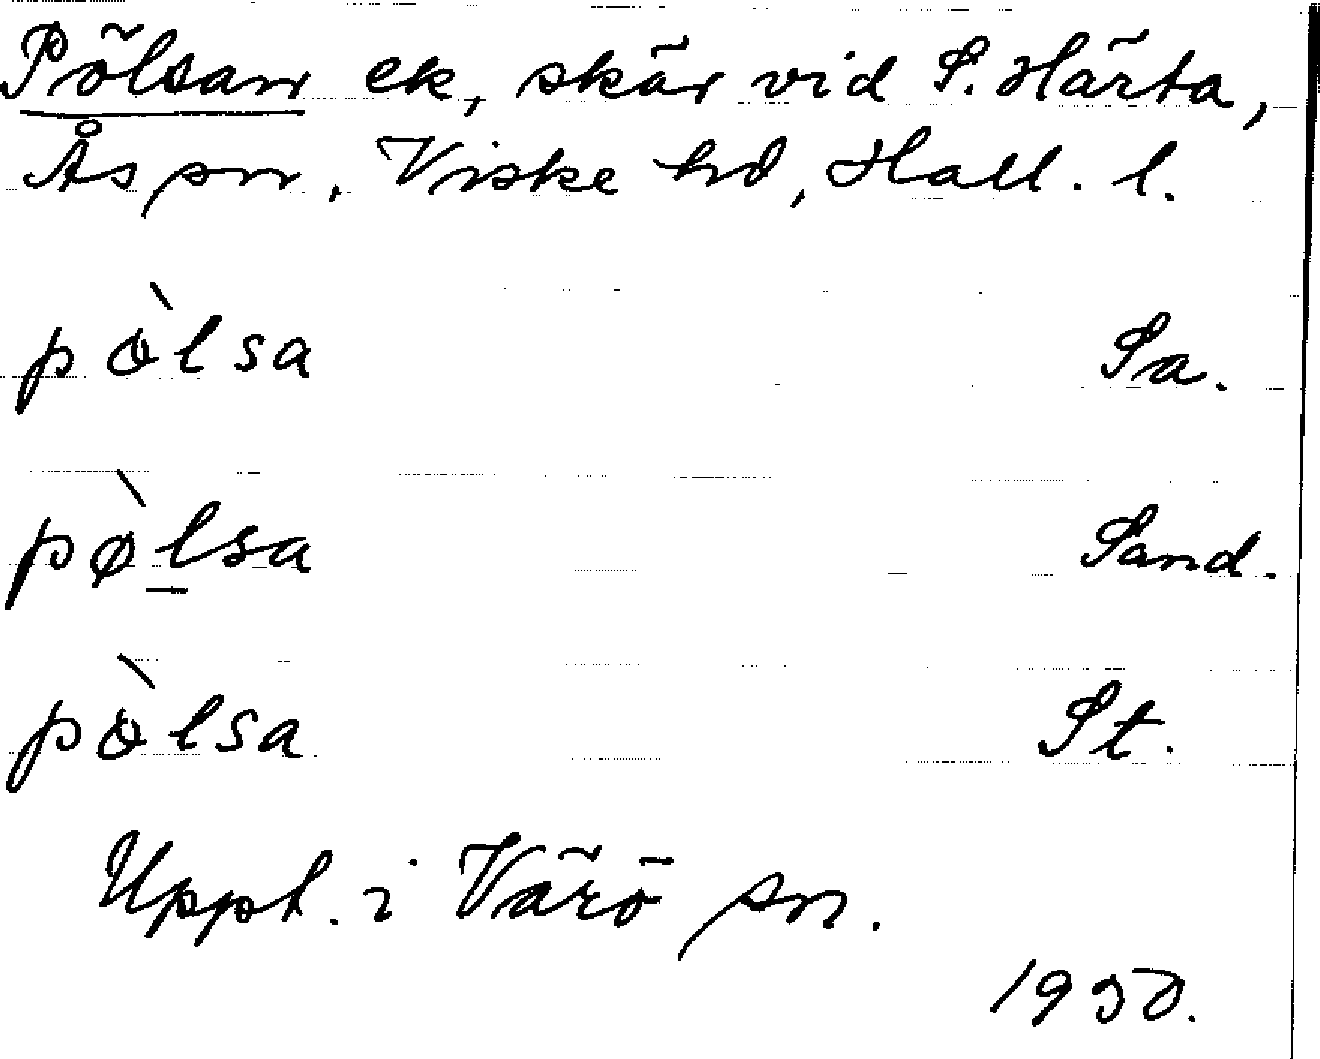 Pölsan ek, skär vid S. Härta,
Ås sn. Viske hd, Hall. l.
pòlsa Sa.
pø̀lsa Sand.
pòlsa St.
Upph. i Värö sn.
1930.